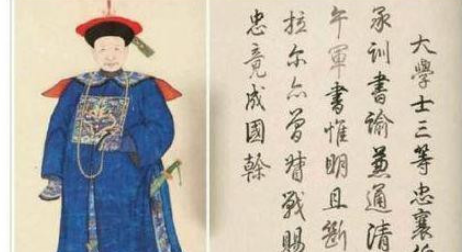 大學士三等忠襄
承訓書諭兼通清
午軍書惟明且斷
拉尔亦曾督戰賜
忠竟成國幹